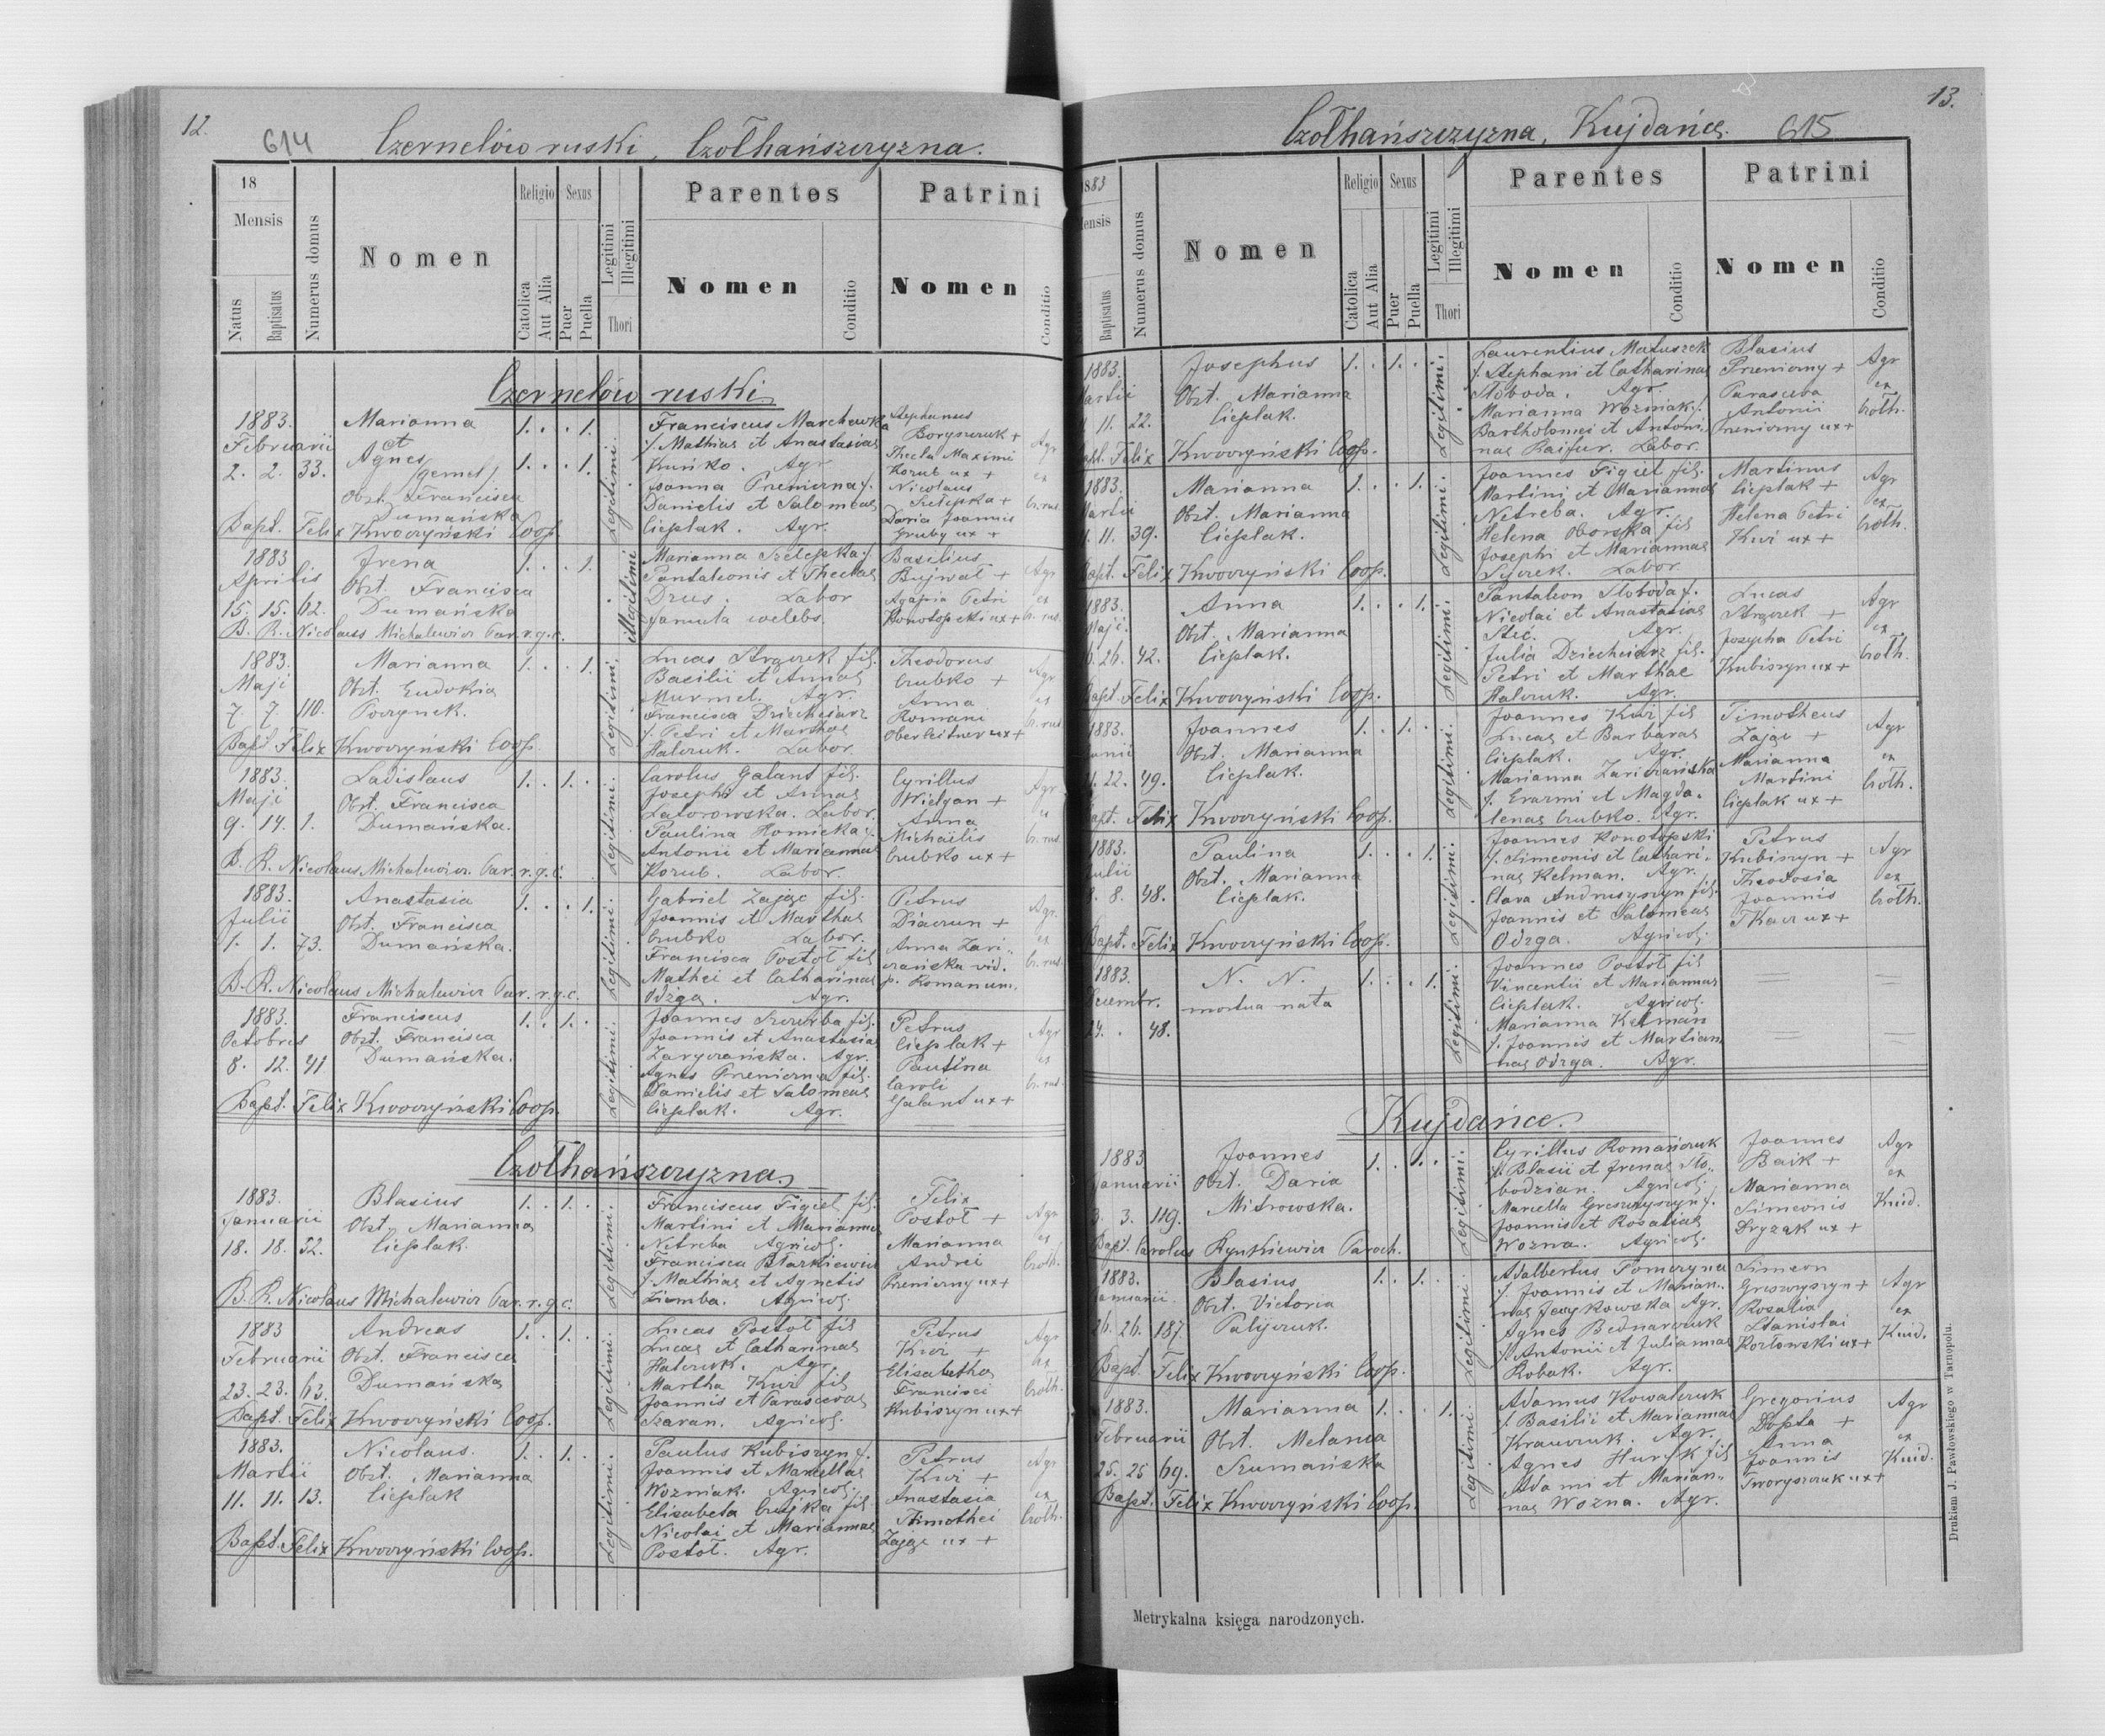 12.
614
Czernelów ruski, Czołhańszczyzna.
18
Mensis
Natus
Baptisatus
Numerus domus
Nomen
Religio
Catolica
Aut Alia
Sexus
Puer
Puella
Legitimi
Illegitimi
Thori
Parentes
Nomen
Conditio
Patrini
Nomen
Conditio
Czernelów ruski.
1883. Februarii 2. 2. 33.
Marianna et Agnes /gemel/
Obst. Francisca Dumańska
1. . . 1.
1. . . 1.
Legitimi.
Franciscus Marchewka
f. Mathiae et Anastasiae
Kuńko. Agr
Joanna Premierna f.
Danielis et Salomeae
Cieplak. Agr.
Stephanus
Boryszczuk +
Thecla Maximi
Kozub ux +
Nicolaus
Daria Joannis
Gruby ux +
Bapt. Felix Kwoczyński Coop.
1883 Aprilis 15. 15. 62.
Irena
Obst. Francisca
Dumańska
1. . . 1.
illegitimi
Marianna Szeleszka f.
Pantaleonis et Theclae
Drus. Labor
famula coelebs.
Basilius
Bujwał +
Agapia Petri
Konotopski ux +
B. R. Nicolaus Michalewicz Par. r. g. c.
1883 Maji 7 7 110.
Marianna
Obst. Eudokia
Poczynek.
1. . . 1.
Legitimi.
Lucas Strączek fil.
Basilii et Annae
Murmel. Agr.
Francisca Dziechciarz
f. Petri et Marthae
Halczuk. Labor
Theodorus
Czubko +
Anna
Romani
Oberleitner ux +
Bapt. Felix Kwoczyński Coop
1883. Maji 9. 14. 1.
Ladislaus
Obst. Francisca
Dumańska.
1. . 1. .
Legitimi.
Carolus Galant fil.
Josephi et Annae
Zatorowska. Labor.
Paulina Homicka f.
Antonii et Mariannae
Kozub. Labor.
Cyrillus
Wielgan +
Anna
Michailis
Czubko ux +
B. R. Nicolaus Michalewicz. Par. r. g. c.
1883. Julii 1. 1. 73.
Anastasia
Obst. Francisca
Dumańska.
1. . . 1.
Legitimi.
Gabriel Zając fil.
Joannis et Marthae
Czubko Labor.
Francisca Postoł fil
Mathei et Catharinae
Odzga. Agr.
Petrus
Diaczun +
Anna Zari-
czańska vid.
p. Romanum.
B. R. Nicolaus Michalewicz Par. r. g. c.
1883. Octobris 8. 12. 41
Franciscus
Obst. Francisca
Dumańska.
1. . 1. .
Legitimi.
Joannes Szczerba fil.
Joannis et Anastasia
Zaryczańska. Agr.
Agnes Premierna fil.
Danielis et Salomeae
Cieplak. Agr.
Petrus
Cieplak +
Paulina
Caroli
Galant ux +
Bapt. Felix Kwoczyński Coop.
Czołhańszczyzna.
1883. Januarii 18. 18. 32.
Blasius
Obst. Marianna
Cieplak.
1. . 1. .
Legitimi.
Franciscus Figiel fil.
Martini et Mariannae
Netreba Agricol.
Francisca Błazkiewicz
f. Mathiae et Agnetis
Ziemba. Agricol.
Felix
Postoł +
Marianna
Andrei
Premierny ux +
B. R. Nicolaus Michalewicz Par. r. g. c.
1883 Februarii 23. 23. 63.
Andreas
Obst. Francisca
Dumańska
1. . 1. .
Legitimi.
Lucas Postoł fil
Lucae et Catharinae
Halczuk. Agr.
Martha Kuź fil
Joannis et Parascevae
Szaran. Agricol.
Petrus
Kuź +
Elisabetha
Francisci
Kubiszyn ux +
Bapt. Felix Kwoczyński Coop.
1883. Martii 11. 11. 13.
Nicolaus.
Obst. Marianna
Cieplak
1. . 1. .
Legitimi.
Paulus Kubiszyn f.
Joannis et Marcellae
Wozniak. Agricol.
Elisabeta Czujka fil.
Nicolai et Mariannae
Postoł. Agr.
Petrus
Kuź +
Anastasia
Timothei
Zając ux +
Bapt. Felix Kwoczyński Coop.
13.
Czołhańszczyzna, Kujdańce. 615
1883
Mensis
Baptisatus
Numerus domus
Nomen
Religio
Catolica
Aut Alia
Sexus
Puer
Puella
Legitimi
Illegitimi
Thori
Parentes
Nomen
Conditio
Patrini
Nomen
Conditio
1883. Martii 11. 22.
Josephus
Obst. Marianna
Cieplak.
1. . 1. .
Legitimi.
Laurentius Matuszek
f. Stephani et Catharinae
Słoboda. Agr.
Marianna Wozniak f.
Bartholomei et Antoni-
nae Raifur. Labor.
Blasius
Premierny +
Parasceba
Antonii
Premierny ux +
Agr
ex
Czołh.
Bapt. Felix Kwoczyński Coop.
1883. Martii 11. 11. 39.
Marianna
Obst. Marianna
Cieplak.
1. . . 1.
Legitimi.
Joannes Figiel fil.
Martini et Mariannae
Netreba. Agr.
Helena Oborska fil
Josephi et Mariannae
Labor
Martinus
Cieplak +
Helena Petri
Kuź ux +
Agr
ex
Czołh.
Bapt. Felix Kwoczyński Coop.
1883. Maji. 26. 42.
Anna
Obst. Marianna
Cieplak.
1. . . 1.
Legitimi.
Pantaleon Słoboda f.
Nicolai et Anastasiae
Steć. Agr.
Julia Dziechciarz fil.
Petri et Marthae
Halczuk. Agr.
Lucas
Strączek +
Josepha Petri
Kubiszyn ux +
Agr
ex
Czołh.
Bapt. Felix Kwoczyński Coop.
1883. Junii 22. 49.
Joannes
Obst. Marianna
Cieplak.
1. . 1. .
Legitimi.
Joannes Kuź fil
Lucae et Barbarae
Cieplak. Agr.
Marianna Zariczańska
f. Erazmi et Magda-
lenae Czubko. Agr.
Timotheus
Zając +
Marianna
Martini
Cieplak ux +
Agr
ex
Czołh.
Bapt. Felix Kwoczyński Coop.
1883. Julii 8. 8. 48.
Paulina
Obst. Marianna
Cieplak.
1. . . 1.
Legitimi.
Joannes Konotopski
f. Simeonis et Cathari-
nae Kelman. Agr.
Clara Andrusyszyn fil.
Joannis et Salomeae
Odzga. Agricol.
Petrus
Kubiszyn +
Theodosia
Joannis
Tkacz ux +
Agr
ex
Czołh.
Bapt. Felix Kwoczyński Coop.
1883. Decembr. 24. . 48.
N. N. +
mortua nata
1. . . 1.
Legitimi.
Joannes Postoł fil
Vincentii et Mariannae
Cieplak. Agricol.
Marianna Kelman
f. Joannis et Marian-
nae Odzga. Agr.
Kujdańce.
1883 Januarii 3. 3. 119.
Joannes
Obst. Daria
Mitrowska.
1. . 1. .
Legitimi.
Cyrillus Romańczuk
f. Blasii et Irenae Sło-
bodzian. Agricol.
Marcella Greszczyszyn f.
Joannis et Rosaliae
Wozna. Agricol.
Joannes
Baik +
Marianna
Simeonis
Dryzak ux +
Agr
ex
Kuid.
Bapt. Carolus Rynkiewicz Paroch.
1883. Januarii 26. 26. 187.
Blasius
Obst. Victoria
Palijczuk.
1. . 1. .
Legitimi.
Adalbertus Pomeryna
f. Joannis et Marian-
nae Jaczykowska Agr.
Agnes Bednarczuk
f. Antonii et Juliannae
Robak. Agr.
Simeon
Greszczyszyn +
Rosalia
Stanislai
Kozłowski ux +
Agr
ex
Kuid.
Bapt. Felix Kwoczyński Coop.
1883. Februarii 25. 25 69.
Marianna
Obst. Melania
Szumańska
1. . . 1.
Legitimi.
Adamus Kowalczuk
f. Basilii et Mariannae
Krawczuk. Agr.
Agnes Huryk fil
Adami et Marian-
nae Wozna. Agr.
Gregorius
Dopta +
Anna
Joannis
Tworyszczuk ux +
Agr
ex
Kuid.
Bapt. Felix Kwoczyński Coop.
Metrykalna księga narodzonych.
Drukiem J. Pawłowskiego w Tarnopolu.